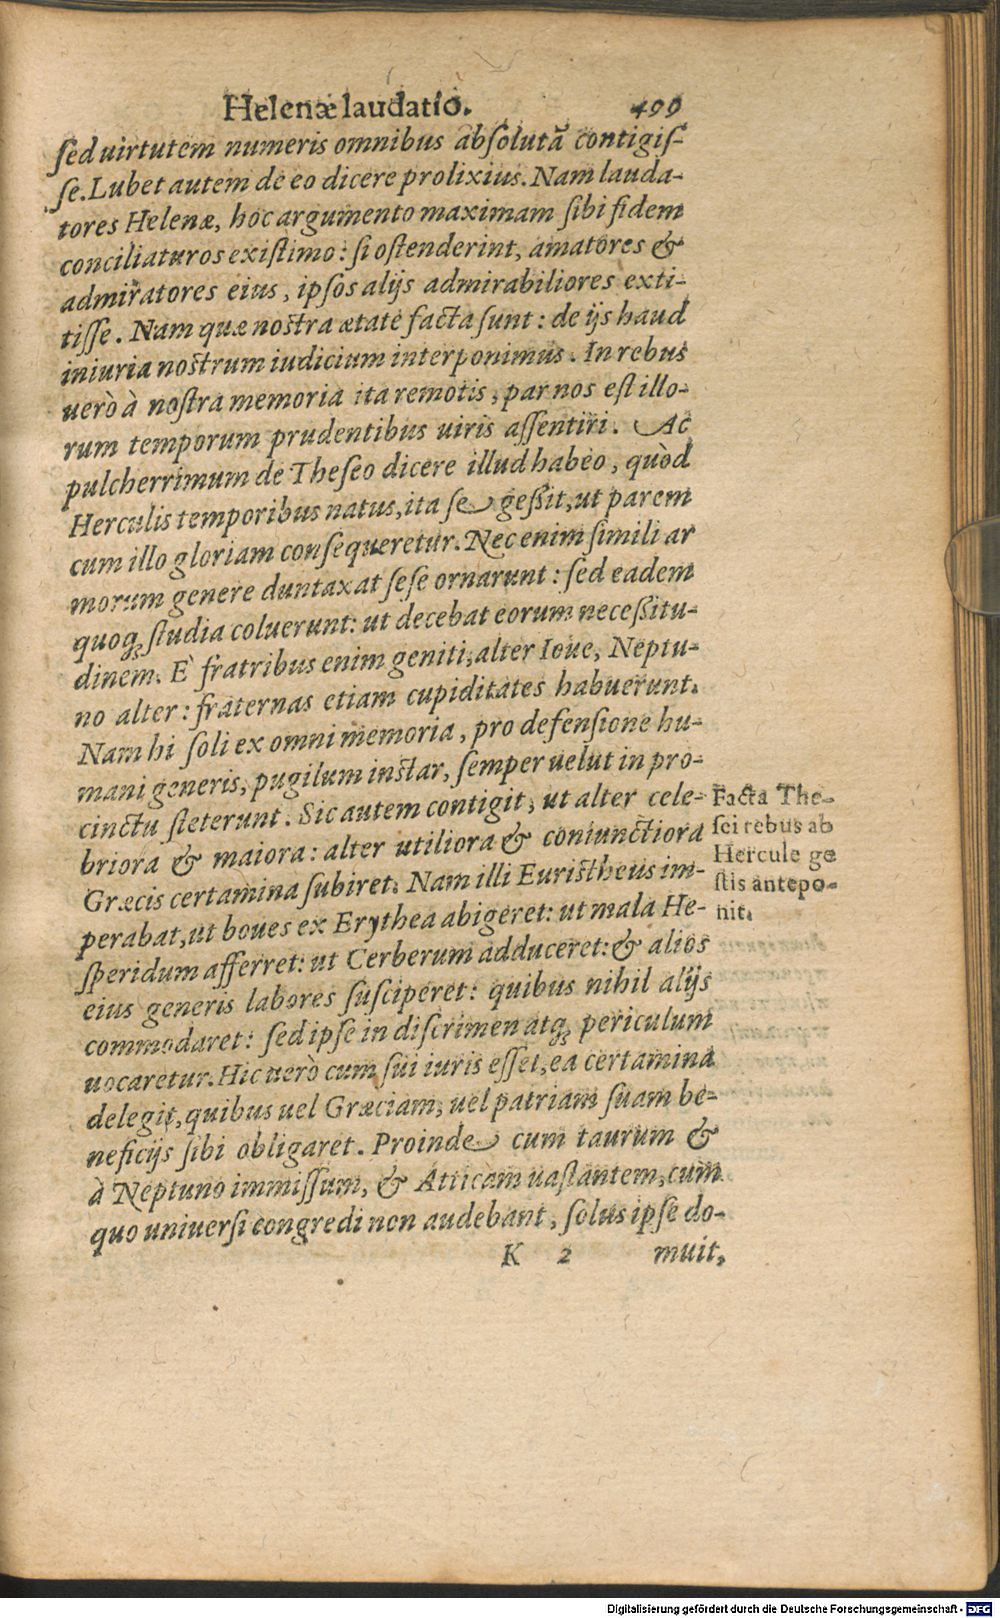 Helenæ laudatio. 499
sed uirtutem numeris omnibus absolutã contigis-
se. Lubet autem de eo dicere prolixius. Nam lauda-
tores Helenæ, hoc argumento maximam sibi fidem
conciliaturos existimo: si ostenderint, amatores &
admiratores eius, ipsos alijs admirabiliores exti-
tisse. Nam quæ nostra ætate facta sunt: de ijs haud
iniuria nostrum iudicium interponimus. In rebus
uerò à nostra memoria ita remotis, par nos est illo-
rum temporum prudentibus uiris assentiri. Ac
pulcherrimum de Theseo dicere illud habeo, quòd
Herculis temporibus natus, ita se gessit, ut parem
cum illo gloriam consequeretur. Nec enim simili ar
morum genere duntaxat sese ornarunt: sed eadem
quoq; studia coluerunt: ut decebat eorum necessitu-
dinem. È fratribus enim geniti, alter Ioue, Neptu-
no alter: fraternas etiam cupiditates habuerunt.
Nam hi soli ex omni memoria, pro defensione hu-
mani generis, pugilum instar, semper uelut in pro-
cinctu steterunt. Sic autem contigit, ut alter cele-
briora & maiora: alter utiliora & coniunctiora
Græcis certamina subiret. Nam illi Euristheus im-
perabat, ut boues ex Erythea abigeret: ut mala He-
speridum afferret: ut Cerberum adduceret: & alios
eius generis labores susciperet: quibus nihil alijs
commodaret: sed ipse in discrimen atq; periculum
uocaretur. Hic uerò cum sui iuris esset, ea certamina
delegit, quibus uel Græciam, uel patriam suam be-
neficijs sibi obligaret. Proinde cum taurum &
à Neptuno immissum, & Atticam uastantem, cum
quo uniuersi congredi non audebant, solus ipse do-
K 2 muit,
Facta The-
sei rebus ab
Hercule ge
stis antepo-
nit.
Digitalisierung gefördert durch die Deutsche Forschungsgemeinschaft - DFG